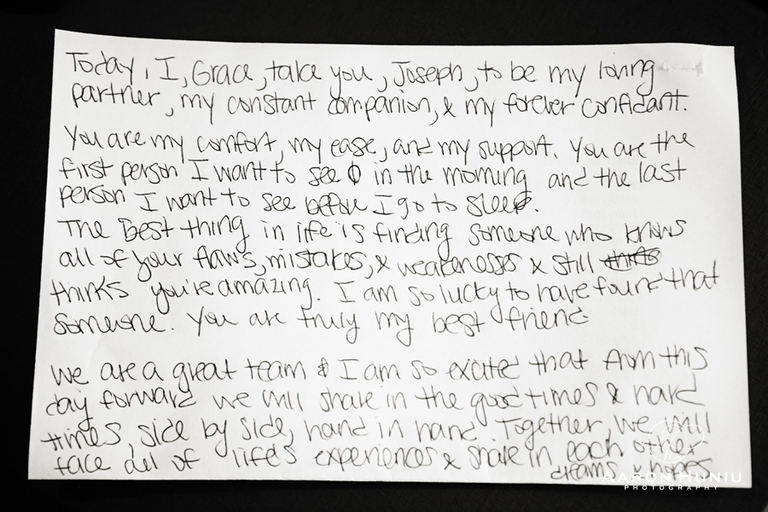 Today, I, Grace, take you, Joseph, to be my loving
partner, my constant companion, & my forever confidant.
You are my comfort, my ease, and my support. You are the
first person I want to see in the morning and the last
person I want to see before I go to sleep.
The Best thing in life is finding someone who knows
all of your flaws, mistakes, & weaknesses & still
thinks you're amazing. I am so lucky to have found that
someone. You are truly my best friend
We are a great team & I am so excited that from this
day forward we will share in the good times & hard
times, side by side, hand in hand. Together, we will
face all of life's experiences & share in each other
dreams & hopes
AARON HUNIU
PHOTOGRAPHY